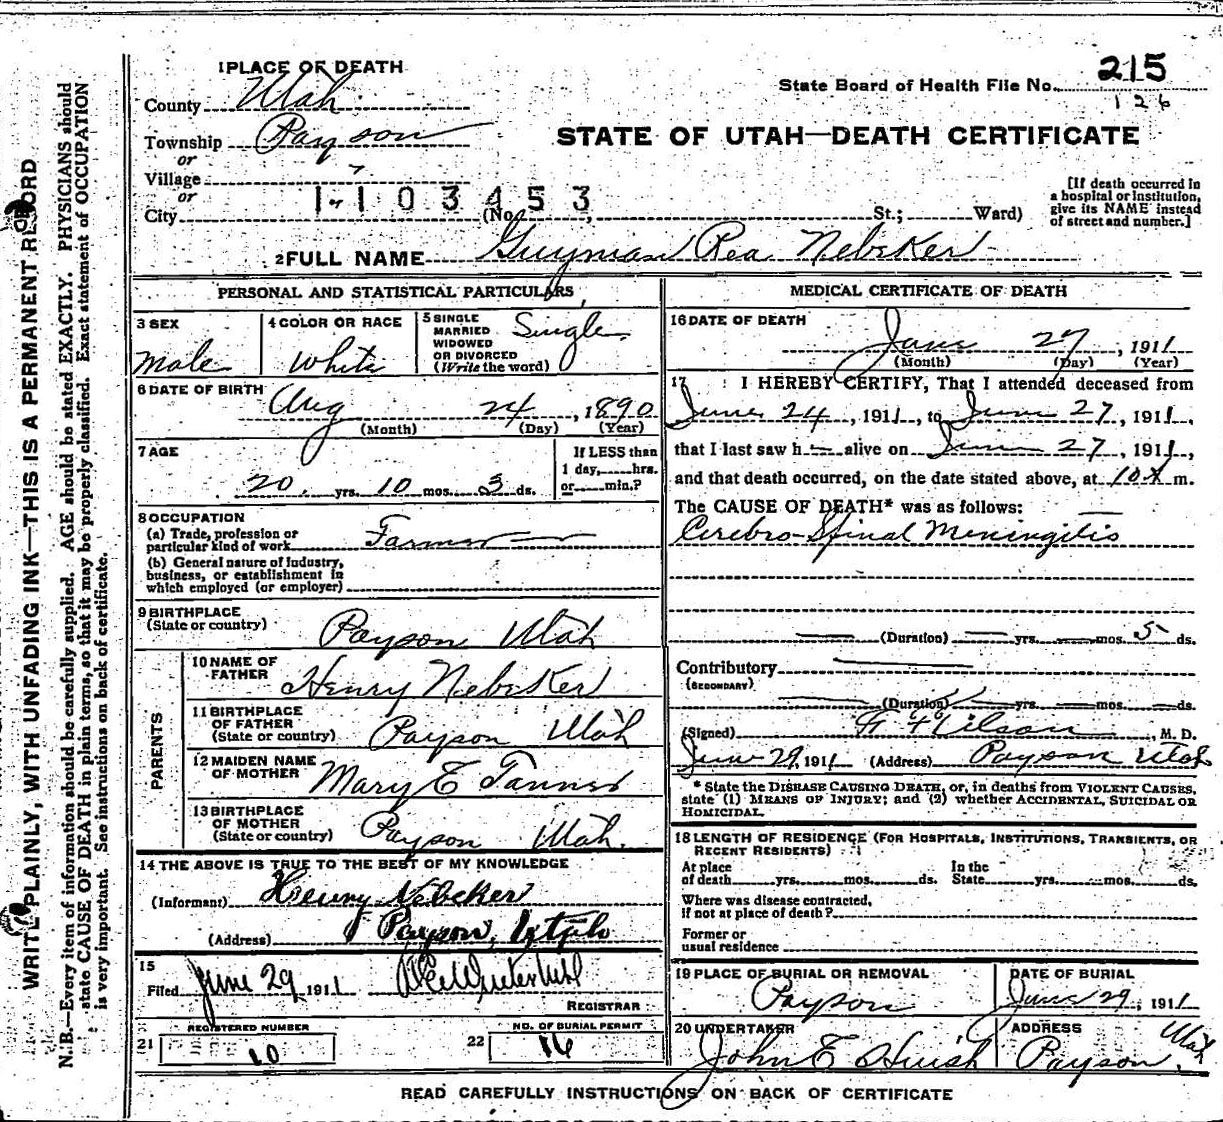 1 PLACE OF DEATH
County Utah
Township Payson
or
Village
or
City
1-103453
(No. St.; Ward)
State Board of Health File No. 215
126
STATE OF UTAH—DEATH CERTIFICATE
[If death occurred in
a hospital or institution,
give its NAME instead
of street and number.]
2 FULL NAME Guyman Rea Nebeker
PERSONAL AND STATISTICAL PARTICULARS
3 SEX
Male
4 COLOR OR RACE
White
5 SINGLE
MARRIED
WIDOWED
OR DIVORCED
(Write the word)
Single
6 DATE OF BIRTH
Aug 24, 1890
(Month) (Day) (Year)
7 AGE
20 yrs. 10 mos. 3 ds.
If LESS than
1 day, hrs.
or min.?
8 OCCUPATION
(a) Trade, profession or
particular kind of work Farmer
(b) General nature of Industry,
business, or establishment in
which employed (or employer)
9 BIRTHPLACE
(State or country)
Payson Utah
PARENTS
10 NAME OF
FATHER
Henry Nebeker
11 BIRTHPLACE
OF FATHER
(State or country)
Payson Utah
12 MAIDEN NAME
OF MOTHER
Mary E Tanner
13 BIRTHPLACE
OF MOTHER
(State or country)
Payson Utah.
14 THE ABOVE IS TRUE TO THE BEST OF MY KNOWLEDGE
(Informant) Henry Nebeker
(Address) Payson, Utah
15
Filed June 29, 1911
REGISTRAR
21 REGISTERED NUMBER
10
22 NO. OF BURIAL PERMIT
16
MEDICAL CERTIFICATE OF DEATH
16 DATE OF DEATH
June 27, 1911
(Month) (Day) (Year)
17 I HEREBY CERTIFY, That I attended deceased from
June 24, 1911, to June 27, 1911,
that I last saw h alive on June 27, 1911,
and that death occurred, on the date stated above, at 10 m.
The CAUSE OF DEATH* was as follows:
Cerebro-Spinal Meningitis
(Duration) yrs. mos. 5 ds.
Contributory
(SECONDARY)
(Duration) yrs. mos. ds.
(Signed) M. D.
June 29, 1911 (Address) Payson Utah
* State the DISEASE CAUSING DEATH, or, in deaths from VIOLENT CAUSES,
state (1) MEANS OF INJURY; and (2) whether ACCIDENTAL, SUICIDAL OR
HOMICIDAL.
18 LENGTH OF RESIDENCE (FOR HOSPITALS, INSTITUTIONS, TRANSIENTS, OR
RECENT RESIDENTS)
At place
of death yrs. mos. ds.
In the
State yrs. mos. ds.
Where was disease contracted,
if not at place of death?
Former or
usual residence
19 PLACE OF BURIAL OR REMOVAL
Payson
DATE OF BURIAL
June 29, 1911
20 UNDERTAKER
John E Huish
ADDRESS
Payson, Utah
READ CAREFULLY INSTRUCTIONS ON BACK OF CERTIFICATE
WRITE PLAINLY, WITH UNFADING INK—THIS IS A PERMANENT RECORD
N. B.—Every item of information should be carefully supplied. AGE should be stated EXACTLY. PHYSICIANS should
state CAUSE OF DEATH in plain terms, so that it may be properly classified. Exact statement of OCCUPATION
is very important. See instructions on back of certificate.